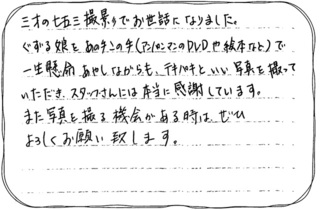 三才の七五三撮影でお世話になりました。
ぐずる娘をあの手この手(アンパンマンのDVDや絵本など)で
一生懸命あやしながらも、テキパキといい写真を撮って
いただき、スタッフさんには本当に感謝しています。
また写真を撮る機会がある時は、ぜひ
よろしくお願い致します。